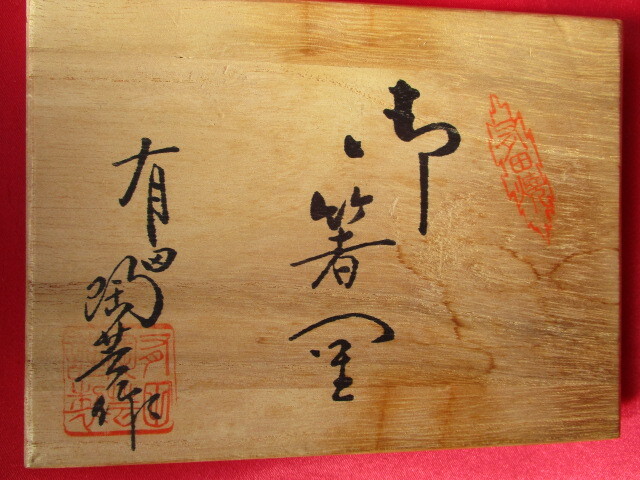 有田焼
御箸置
有田陶芸作
有田